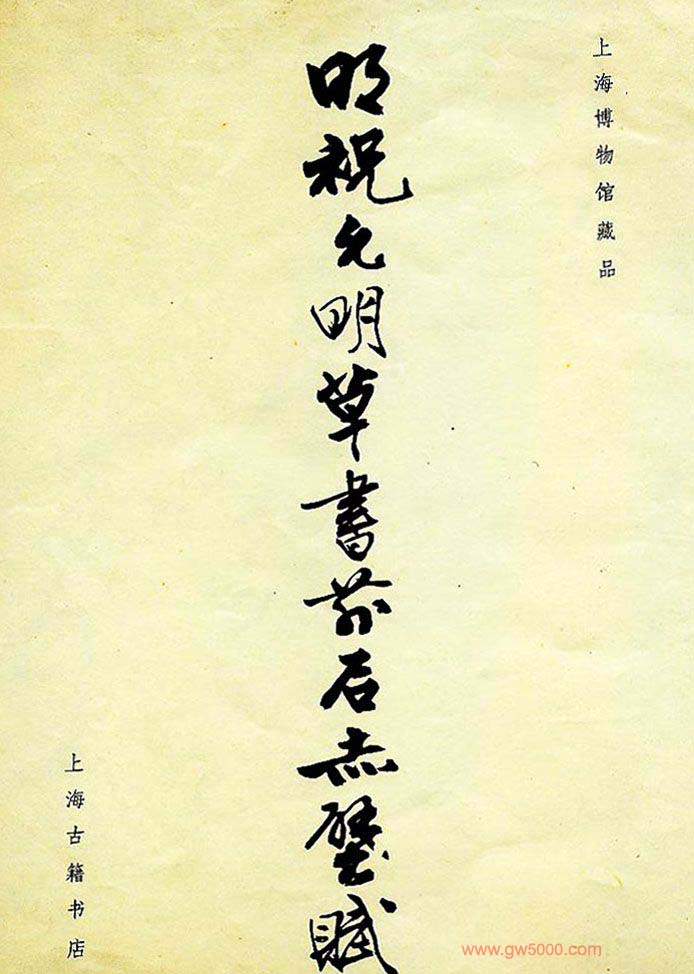 上海博物馆藏品
明祝允明草書前后赤壁賦
上海古籍书店
www.gw5000.com